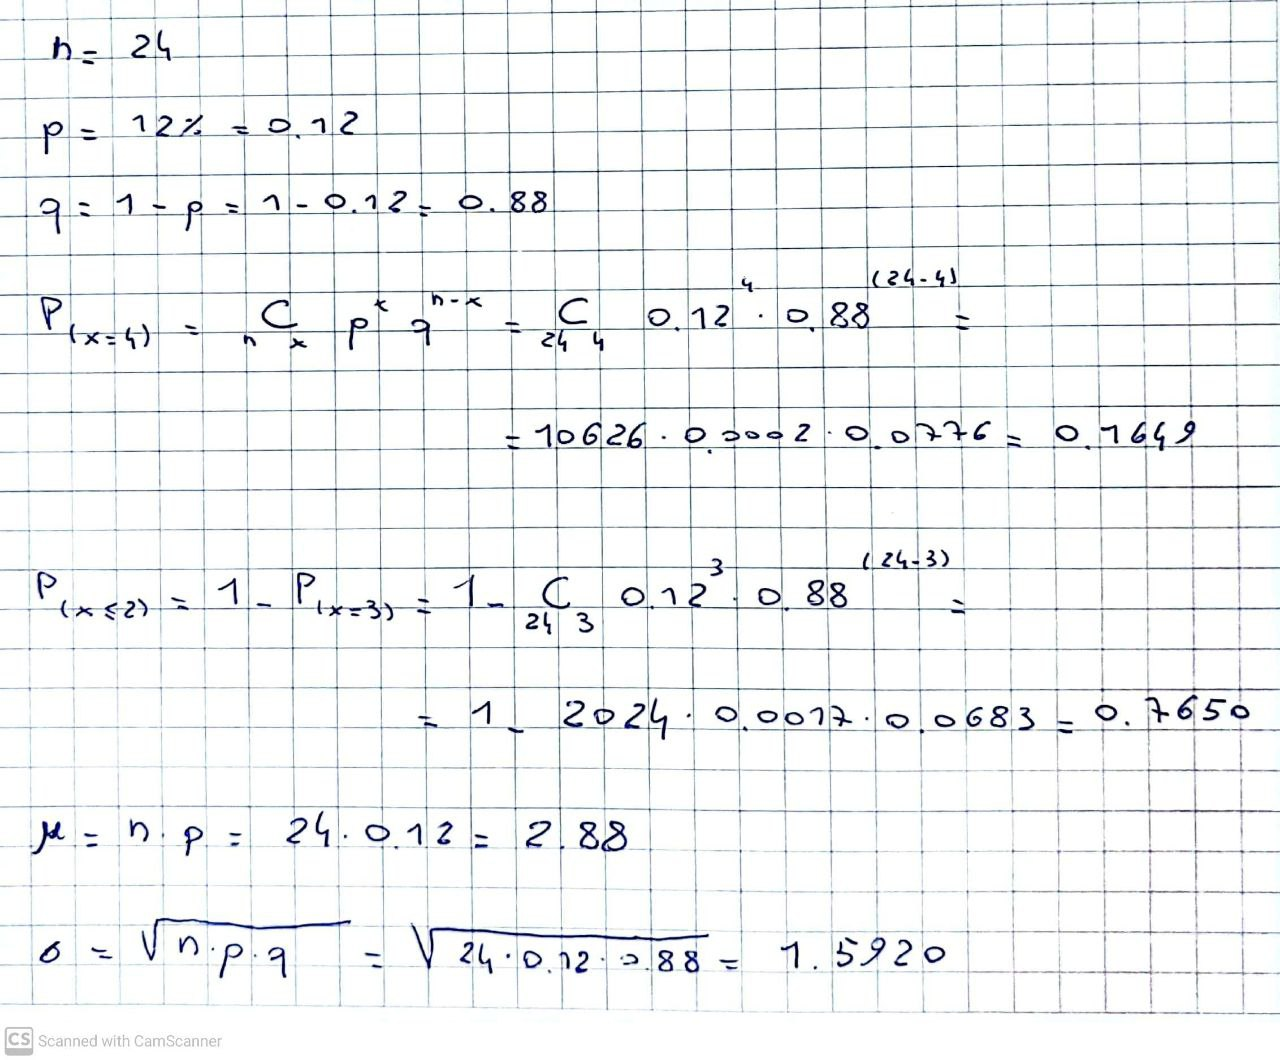 n = 24
p = 12% = 0.12
q = 1 - p = 1 - 0.12 = 0.88
P(x=4) = nCx p^x q^n-x = 24C4 0.12^4 · 0.88^(24-4) =
= 10626 · 0.0002 · 0.0776 = 0.1649
P(x≤2) = 1 - P(x=3) = 1 - 24C3 0.12^3 · 0.88^(24-3) =
= 1 - 2024 · 0.0017 · 0.0683 = 0.7650
μ = n · p = 24 · 0.12 = 2.88
σ = √n·p·q = √24·0.12·0.88 = 1.5920
CS Scanned with CamScanner